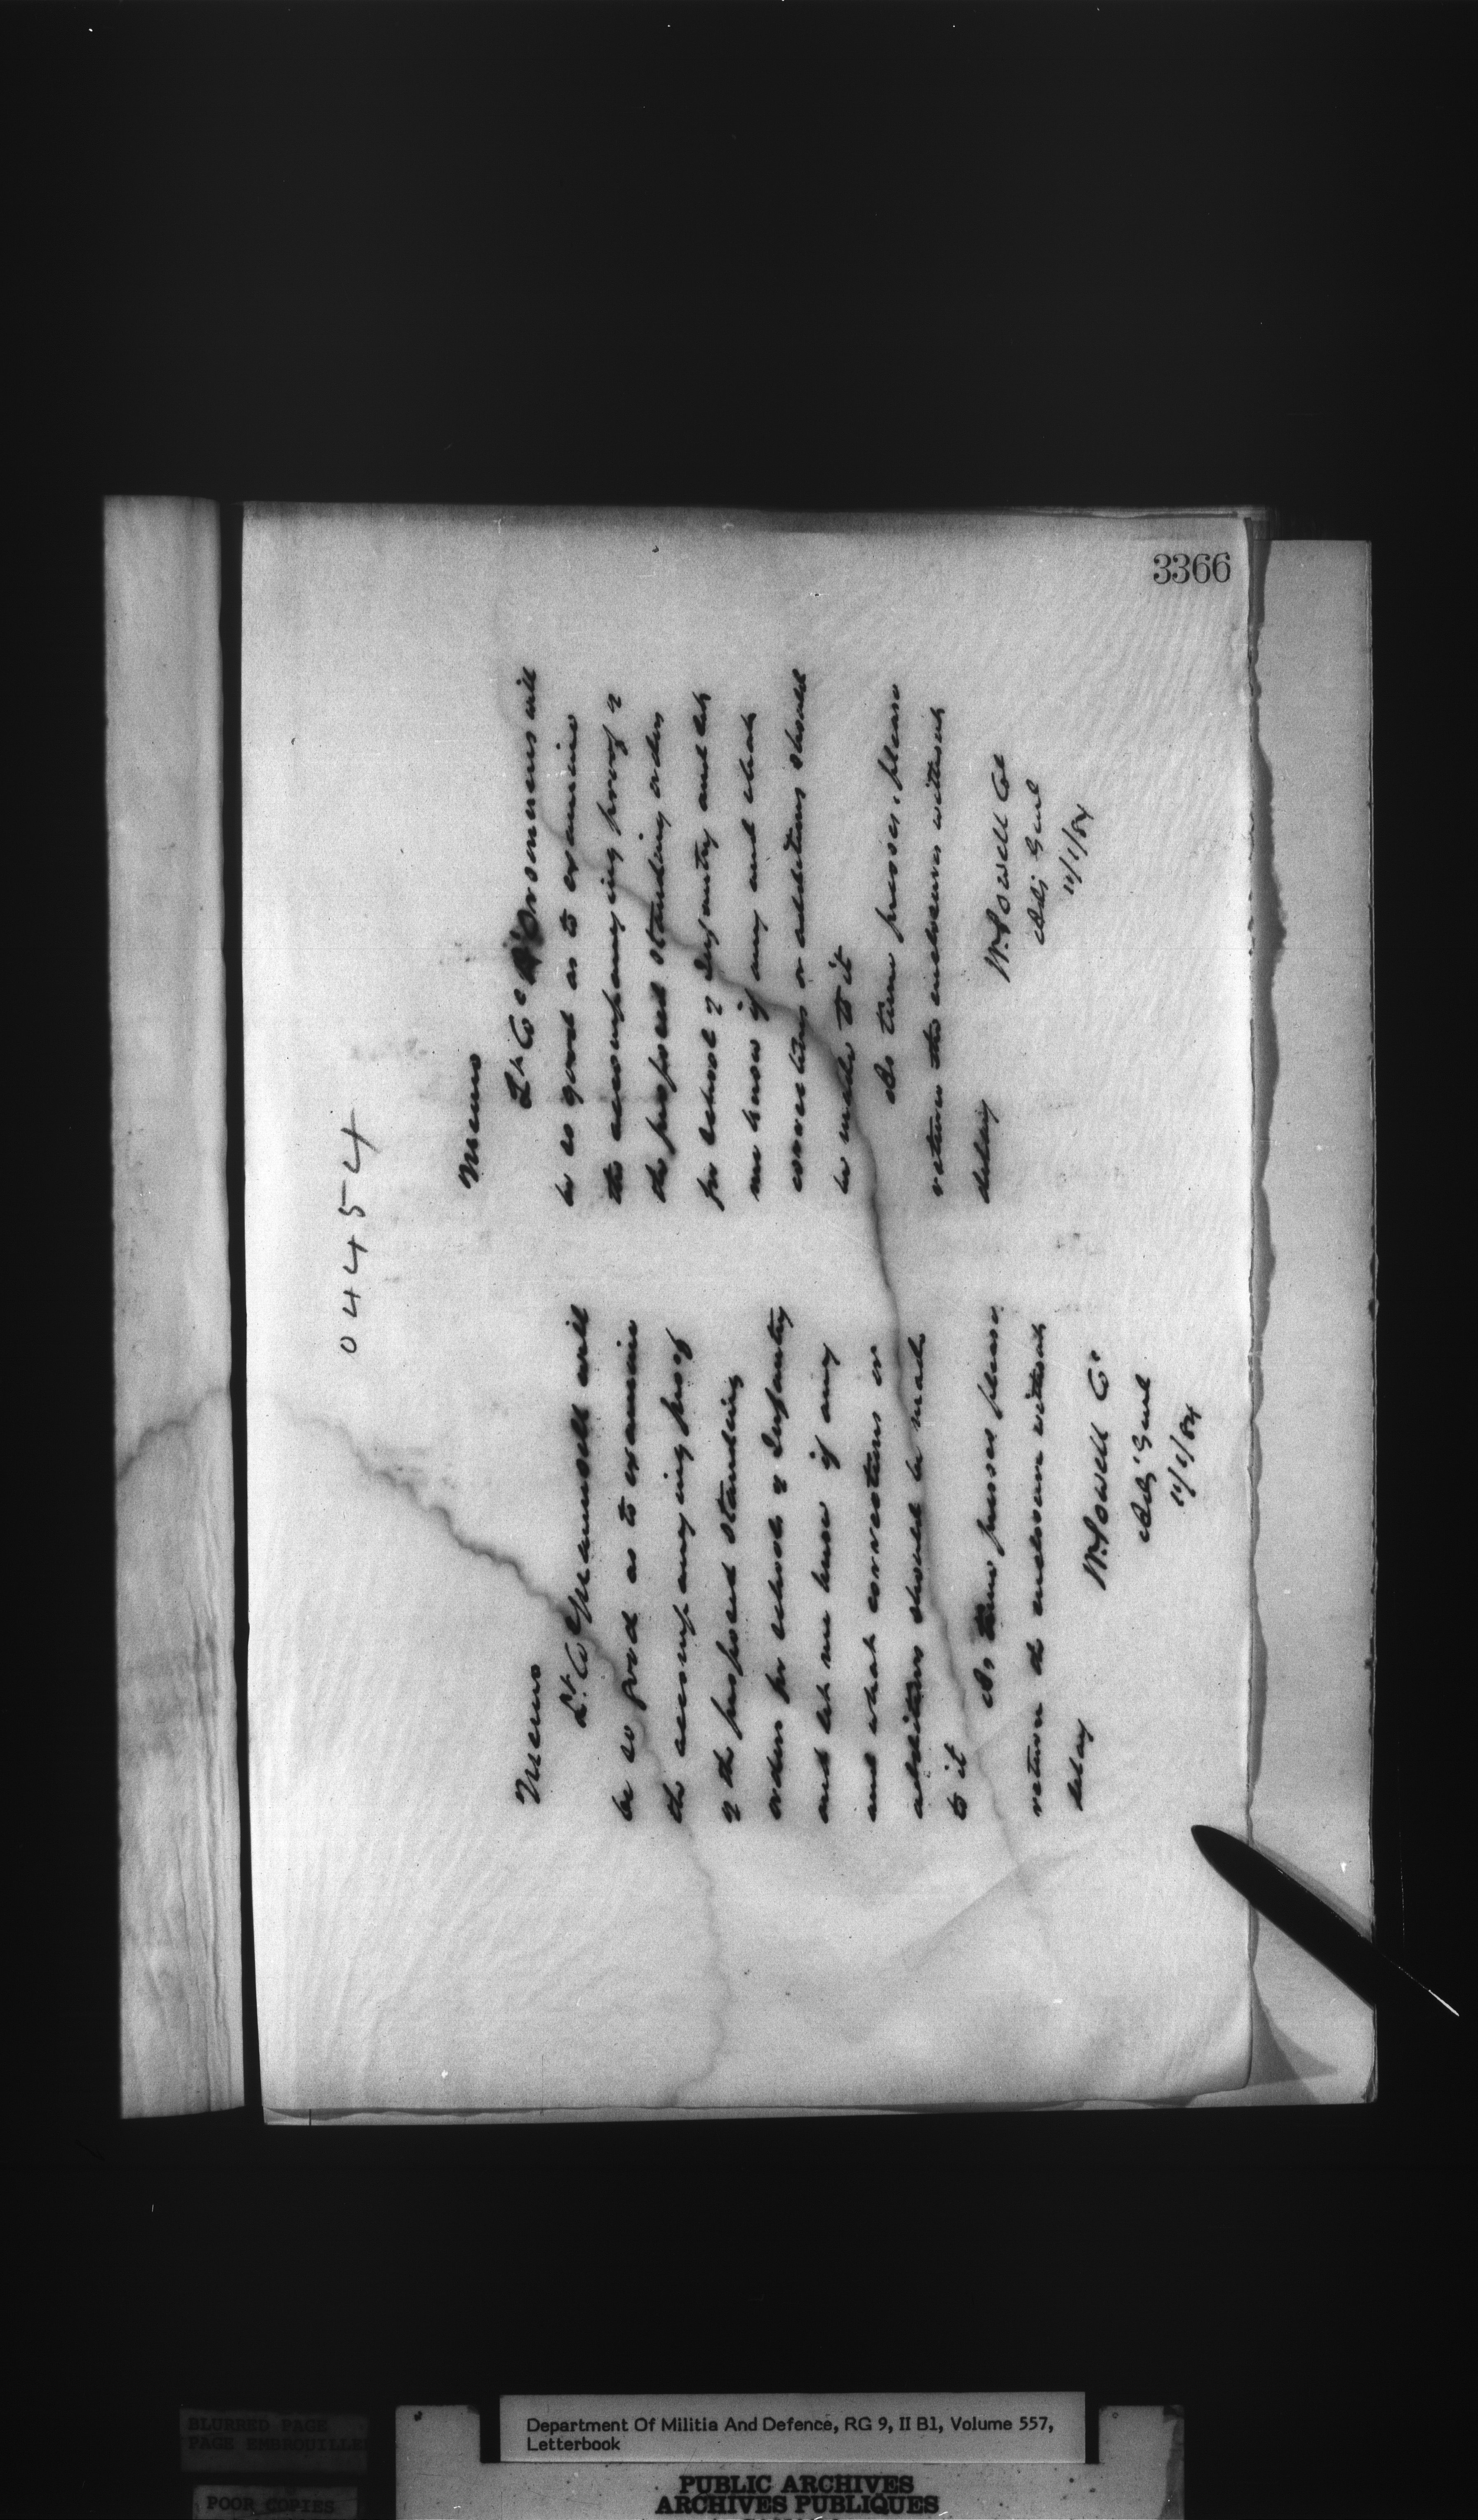 3366
04454
Memo
Lt. Col Maunsell will
be so good as to examine
the accompanying proof
of the proposed standing
orders for schools of Infantry
and let me know if any
and what corrections or
additions should be made
to it
As time presses please
return the enclosure without
delay
W. Powell Cl
Adj Genl
11/1/84
Memo
Lt Col d'Orsonnens will
be so good as to examine
the accompanying proof of
the proposed standing orders
for school of Infantry and let
me know if any and what
corrections or additions should
be made to it
As time presses, please
return the enclosures without
delay
W. Powell Cl
Adj Genl
11/1/84
BLURRED PAGE
PAGE EMBROUILLEE
POOR COPIES
Department Of Militia And Defence, RG 9, II B1, Volume 557,
Letterbook
PUBLIC ARCHIVES
ARCHIVES PUBLIQUES